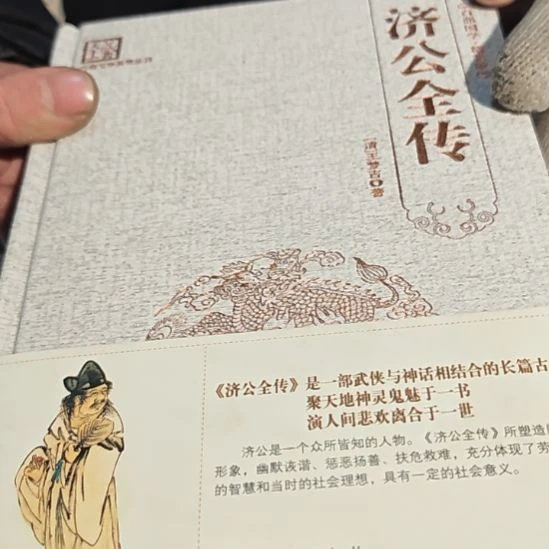 济公全传
[清]王梦吉●著
《济公全传》是一部武侠与神话相结合的长篇古
聚天地神灵鬼魅于一书
演人间悲欢离合于一世
济公是一个众所皆知的人物。《济公全传》所塑造
形象,幽默诙谐、惩恶扬善、扶危救难,充分体现了劳
的智慧和当时的社会理想,具有一定的社会意义。